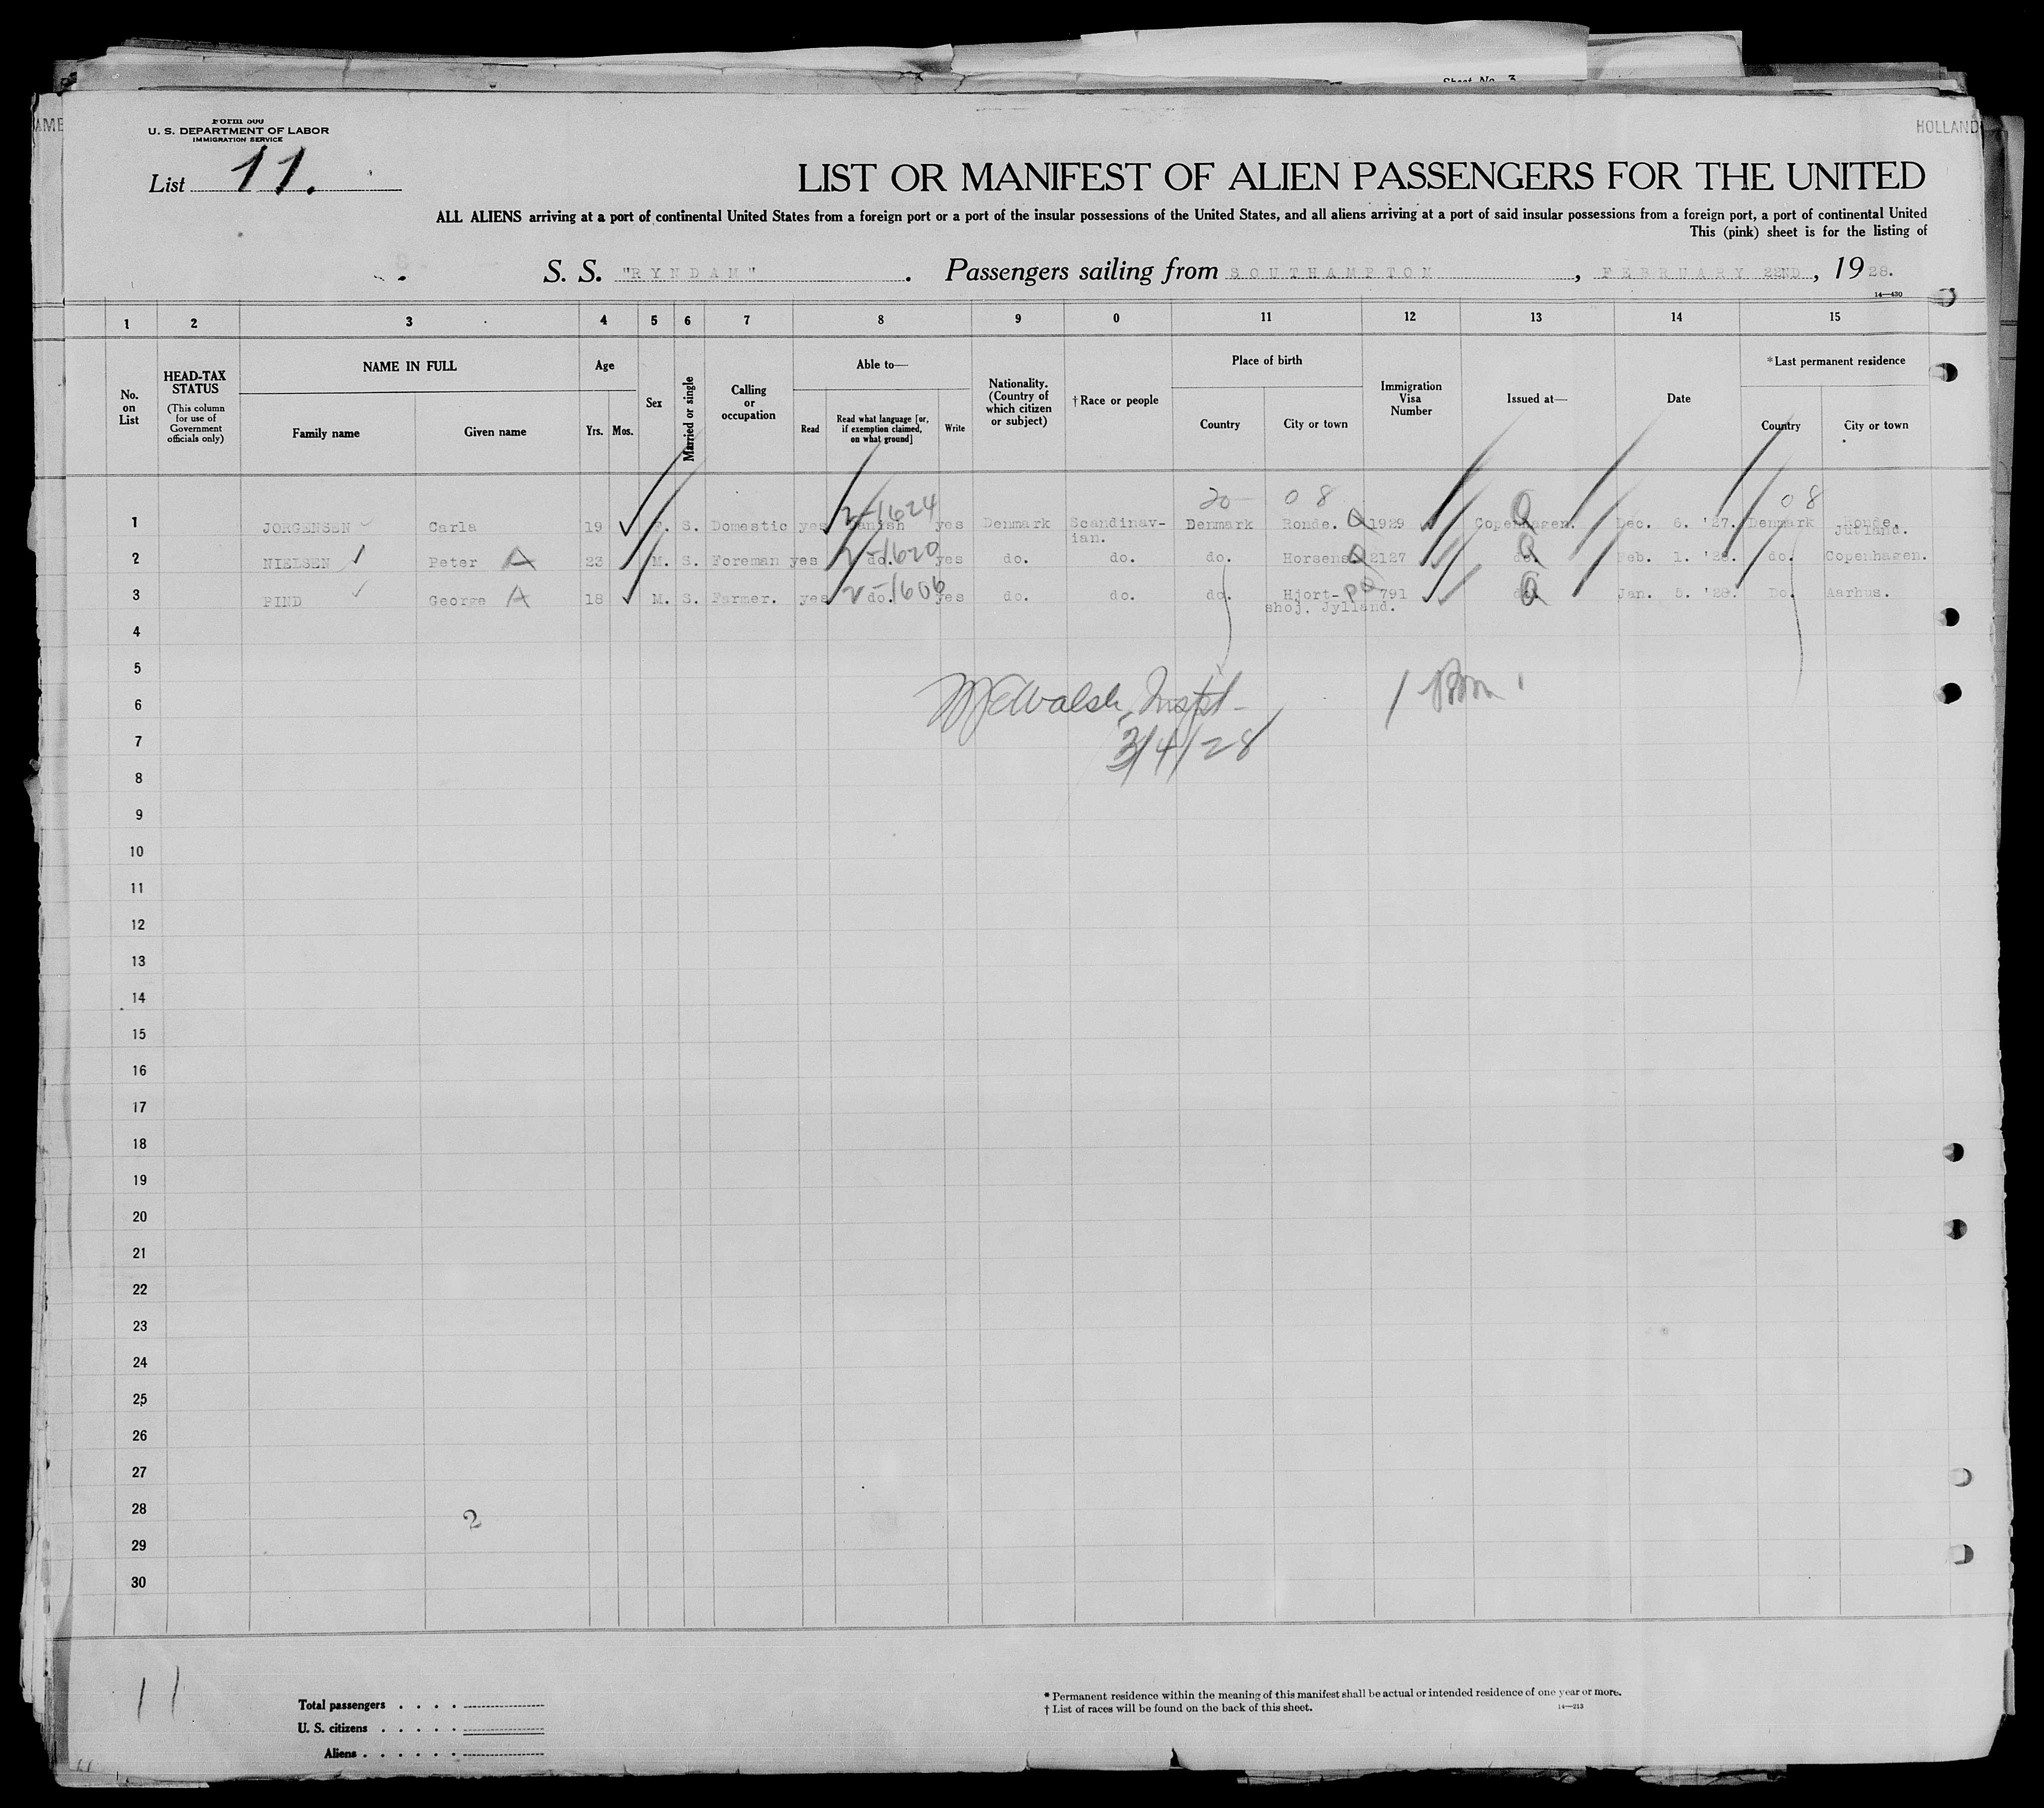 Sheet No. 3
AME
HOLLAND
Form 500
U. S. DEPARTMENT OF LABOR
IMMIGRATION SERVICE
List 11.
LIST OR MANIFEST OF ALIEN PASSENGERS FOR THE UNITED
ALL ALIENS arriving at a port of continental United States from a foreign port or a port of the insular possessions of the United States, and all aliens arriving at a port of said insular possessions from a foreign port, a port of continental United
This (pink) sheet is for the listing of
S. S. "RYNDAM". Passengers sailing from SOUTHAMPTON, FEBRUARY 22ND, 1928.
14—430
1 2 3 4 5 6 7 8 9 0 11 12 13 14 15
No. on List
HEAD-TAX STATUS
(This column for use of Government officials only)
NAME IN FULL
Family name
Given name
Age
Yrs. Mos.
Sex
Married or single
Calling or occupation
Able to—
Read
Read what language [or, if exemption claimed, on what ground]
Write
Nationality. (Country of which citizen or subject)
†Race or people
Place of birth
Country
City or town
Immigration Visa Number
Issued at—
Date
*Last permanent residence
Country
City or town
2-1624 20- 08 08
1 JORGENSEN Carla 19 F. S. Domestic yes Danish yes Denmark Scandinavian. Denmark Ronde. Q 1929 Copenhagen. Dec. 6. '27. Denmark Ronde, Jutland.
2-1620
2 NIELSEN Peter A 23 M. S. Foreman yes do. yes do. do. do. Horsens Q 2127 do. Feb. 1. '28. do. Copenhagen.
2-1606
3 PIND George A 18 M. S. Farmer. yes do. yes do. do. do. Hjort-shoj. Jylland. 791 do. Jan. 5. '28. Do. Aarhus.
4
5
6 Walsh, Inspt-
7 3/4/28
8
9
10
11
12
13
14
15
16
17
18
19
20
21
22
23
24
25
26
27
28 2
29
30
11
Total passengers . . . .
U. S. citizens . . . . .
Aliens . . . . . .
* Permanent residence within the meaning of this manifest shall be actual or intended residence of one year or more.
† List of races will be found on the back of this sheet.
14—213